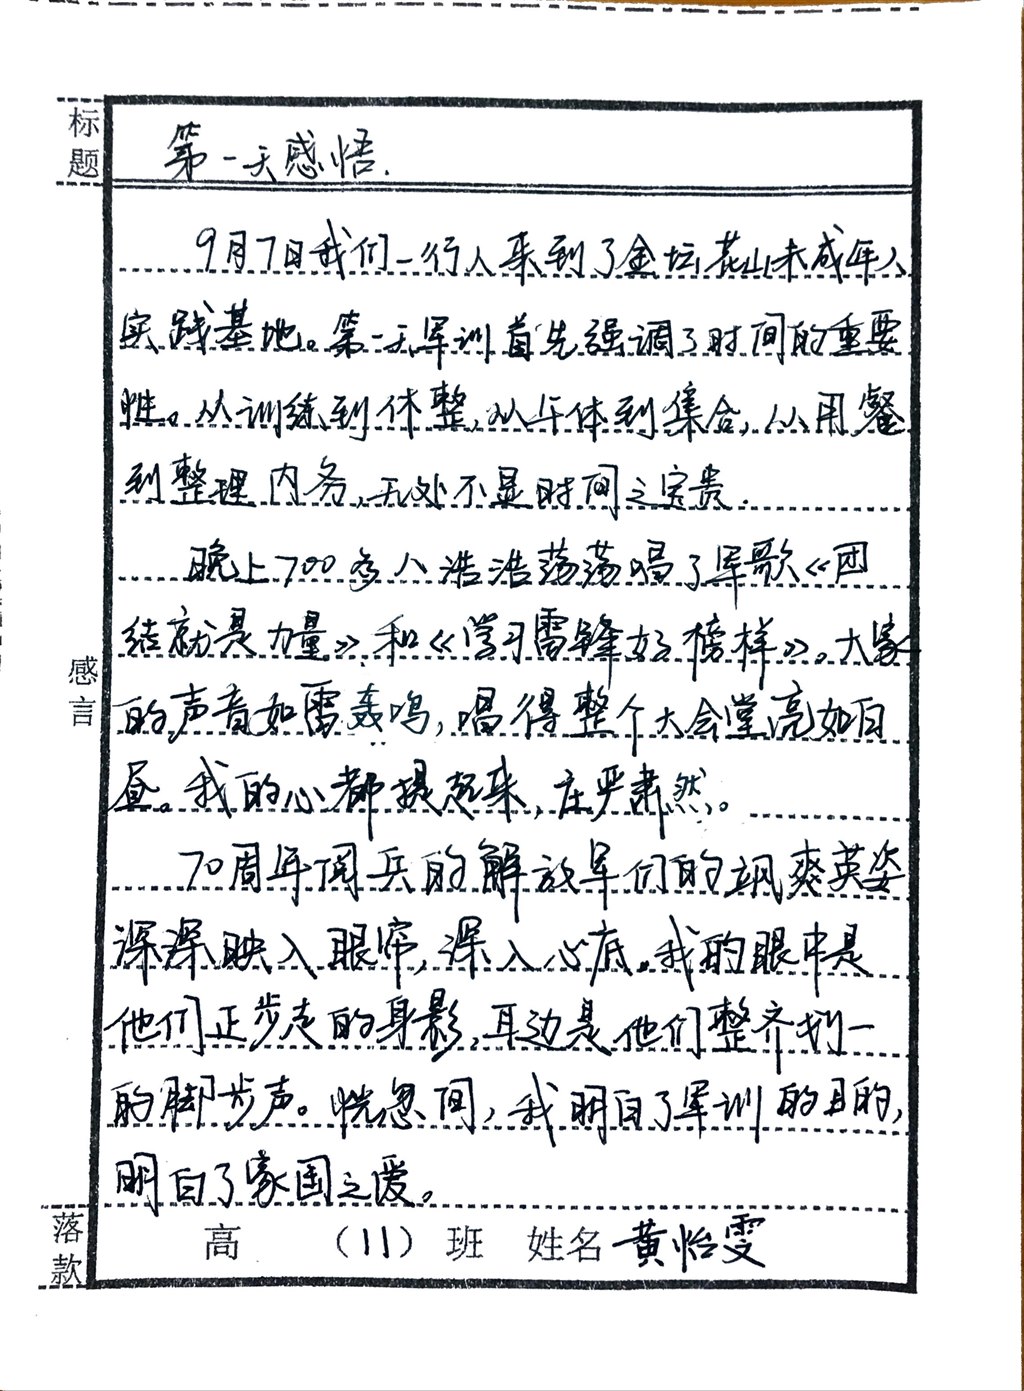 标题
第一天感悟.
9月7日我们一行人来到了金坛花山未成年人
实践基地。第一天军训首先强调了时间的重要
性。从训练到休整,从午休到集合,从用餐
到整理内务,无处不显时间之宝贵.
晚上700多人浩浩荡荡唱了军歌《团
结就是力量》和《学习雷锋好榜样》。大家
的声音如雷轰鸣,唱得整个大会堂亮如白
昼。我的心都提起来,庄严肃然。
感言
70周年阅兵的解放军们的飒爽英姿
深深映入眼帘,深入心底。我的眼中是
他们正步走的身影,耳边是他们整齐划一
的脚步声。恍忽间,我明白了军训的目的,
明白了家国之爱。
落款
高 (11) 班 姓名 黄怡雯